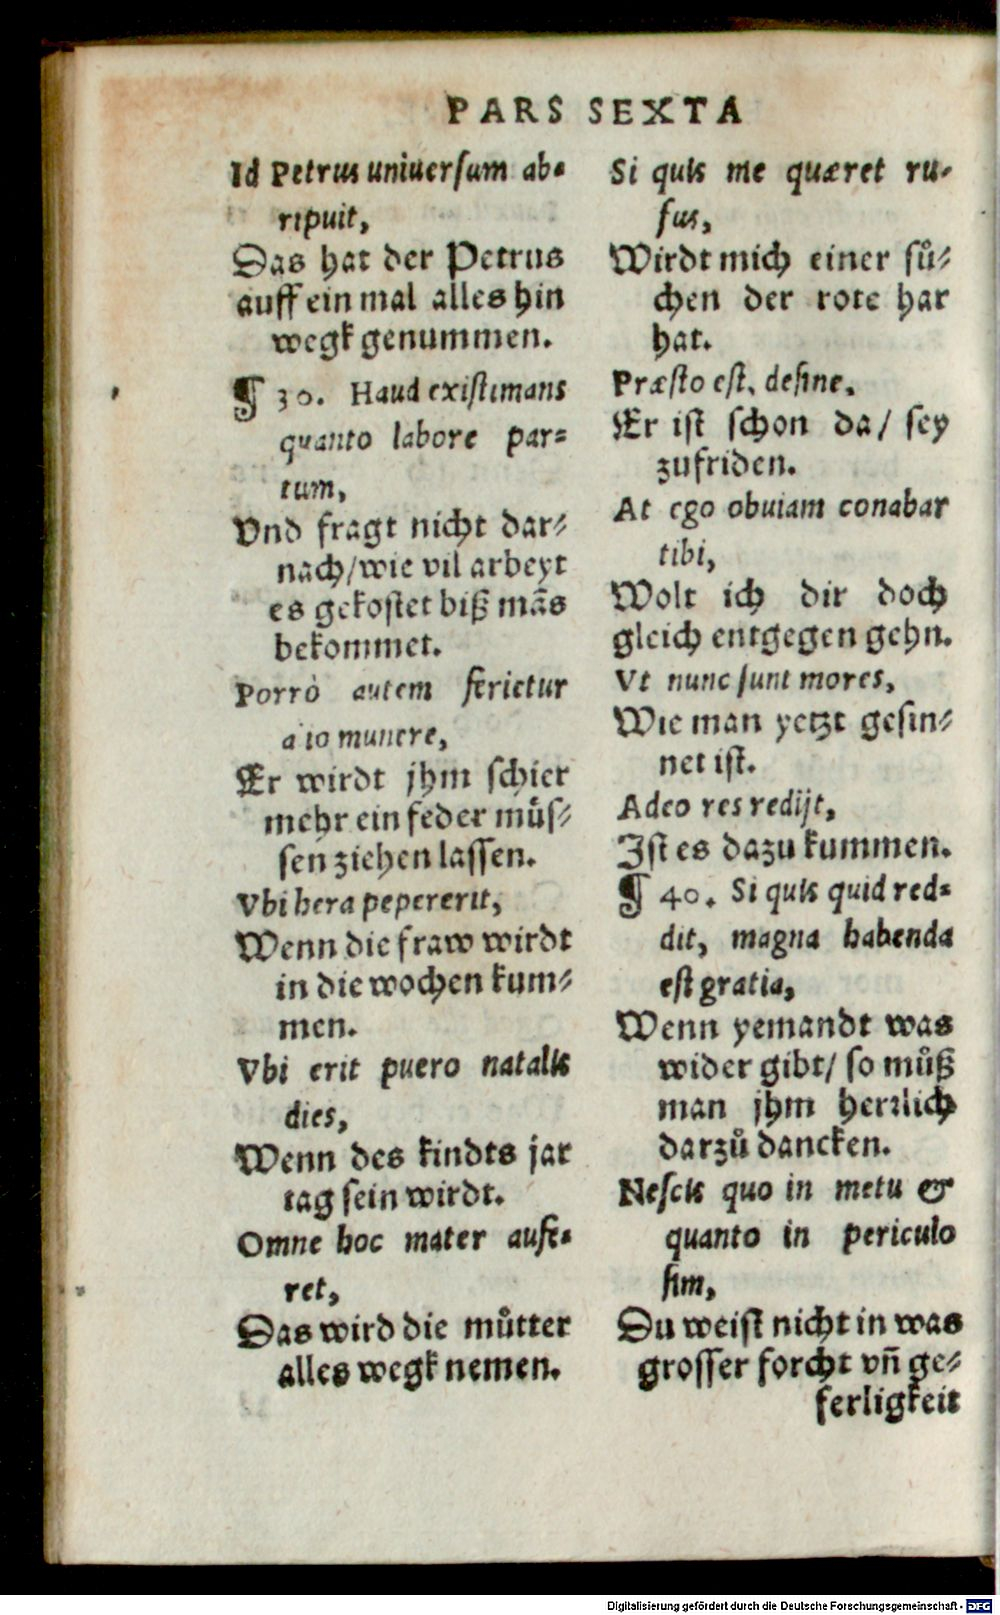 PARS SEXTA
Id Petrus uniuersum ab-
ripuit,
Das hat der Petrus
auff ein mal alles hin
wegk genummen.
¶ 30. Haud existimans
quanto labore par-
tum,
Vnd fragt nicht dar-
nach/wie vil arbeyt
es gekostet biß mãs
bekommet.
Porrò autem ferietur
a io munere,
Er wirdt jhm schier
mehr ein feder můs-
sen ziehen lassen.
Vbi hera pepererit,
Wenn die fraw wirdt
in die wochen kum-
men.
Vbi erit puero natalis
dies,
Wenn des kindts jar
tag sein wirdt.
Omne hoc mater aufe-
ret,
Das wird die můtter
alles wegk nemen.
Si quis me quæret ru-
fus,
Wirdt mich einer sů-
chen der rote har
hat.
Præsto est, desine,
Er ist schon da/ sey
zufriden.
At ego obuiam conabar
tibi,
Wolt ich dir doch
gleich entgegen gehn.
Vt nunc sunt mores,
Wie man yetzt gesin-
net ist.
Adeo res redijt,
Ist es dazu kummen.
¶ 40. Si quis quid red-
dit, magna habenda
est gratia,
Wenn yemandt was
wider gibt/ so můß
man jhm herrlich
darzů dancken.
Nescis quo in metu &
quanto in periculo
sim,
Du weist nicht in was
grosser forcht vñ ge-
ferligkeit
Digitalisierung gefördert durch die Deutsche Forschungsgemeinschaft - DFG